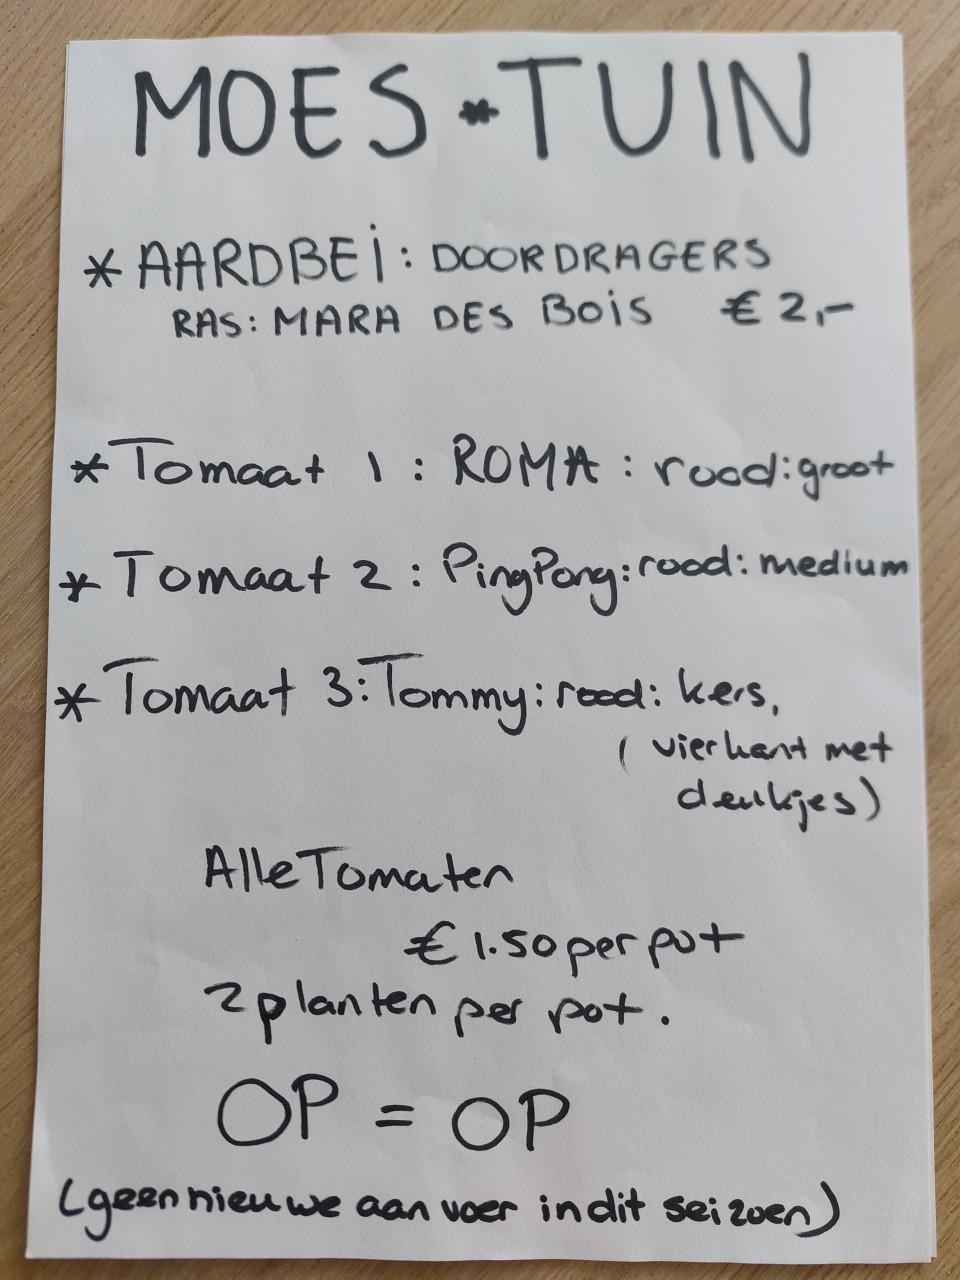 MOES*TUIN
* AARDBEi: DOORDRAGERS
RAS: MARA DES BOiS €2,-
* Tomaat 1: ROMA: rood: groot
* Tomaat 2: PingPong: rood: medium
* Tomaat 3: Tommy: rood: kers,
(vierkant met
deukjes)
Alle Tomaten
€1.50 per pot
2 planten per pot.
OP = OP
(geen nieuwe aanvoer in dit seizoen)